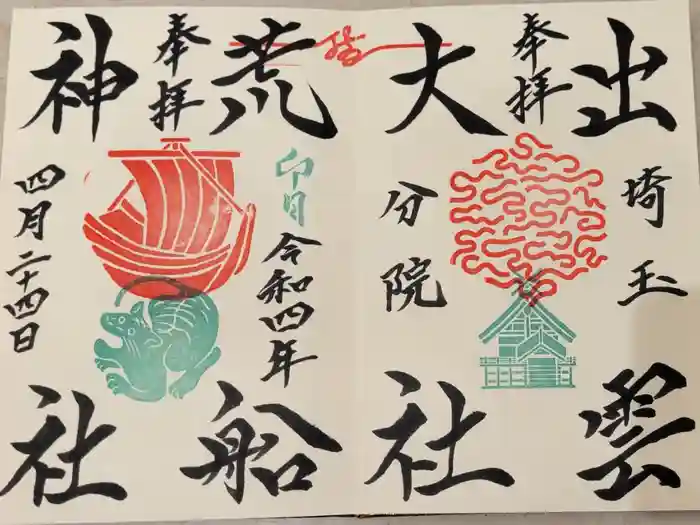 奉拝
出雲
大社
埼玉
分院
奉拝
荒船
神社
卯月
令和四年
四月二十四日